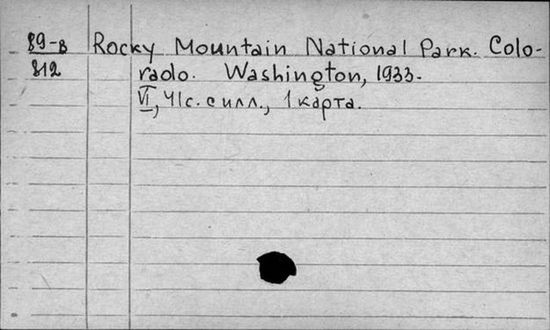 89-8 Rocky Mountain National Park. Colo-
812 rado. Washington, 1933.
VI, 41 с. с илл., 1 карта.